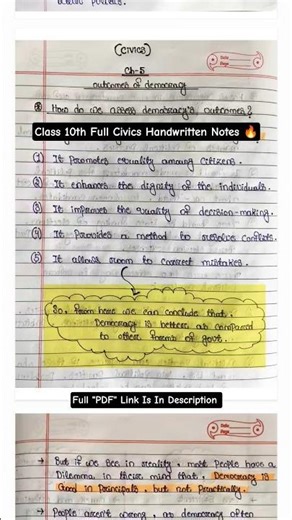 (Civics)
Ch-5
outcomes of democracy
How do we assess democracy's outcomes?
Class 10th Full Civics Handwritten Notes 🔥
(1) It promotes equality among citizens.
(2) It enhances the dignity of the individuals.
(3) It improves the quality of decision-making.
(4) It provides a method to resolve conflicts.
(5) It allows room to correct mistakes.
So, from here we can conclude that,
Democracy is better as compared
to other forms of govt.
Full "PDF" Link Is In Description
→ But if we see in reality, most people have a
Dilemma in their mind that, Democracy is
Good in Principals, but not Practically.
→ People aren't wrong, as democracy often